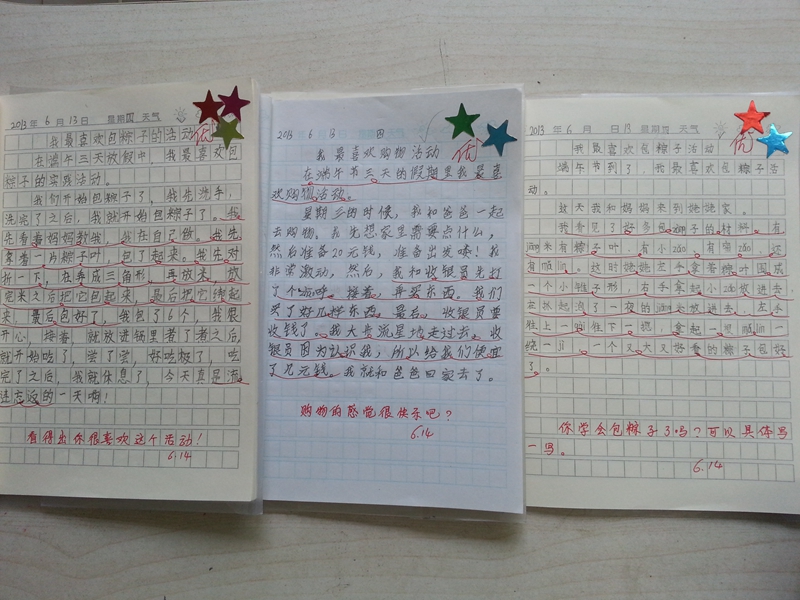 2013年6月13日 星期四 天气
我最喜欢包粽子的活动
优
在端午三天放假中,我最喜欢包
粽子的实践活动。
我们开始包粽子了,我先洗手,
洗完了之后,我就开始包粽子了。我
先看着妈妈教我,我在自己做。我先
拿着一片粽子叶,包了起来。我先对
折一下,在弄成三角形,再放米,放
完米之后把它包起来,最后把它绕起
来,最后包好了,我包了6个,我很
开心,接着,就放进锅里者了者之后,
就开始吃了,尝了尝,好吃极了,吃
完了之后,我就休息了,今天真是流
连忘返的一天啊!
看得出你很喜欢这个活动!
6.14
2013 6 13 四
我最喜欢购物活动
优
在端午节三天的假期里我最喜
欢购物活动。
星期三的时候,我和爸爸一起
去购物。我先想家里需要点什么,
然后准备20元钱,准备出发喽!我
非常激动,然后,我和收银员先打
了个招呼,接着,再买东西。我们
买了好几种东西。最后,收银员要
收钱了。我大步流星地走过去,收
银员因为认识我,所以给我们便宜
了几元钱。我就和爸爸回家去了。
购物的感觉很快乐吧?
6.14
2013年6月13日 星期四 天气
我最喜欢包粽子活动
优
端午节到了,我最喜欢包粽子活
动。
这天我和妈妈来到姥姥家。
我看见了好多包zòng子的材料,有
米有粽子叶,有小zǎo,有蜜zǎo,还
有mǎlín。这时姥姥左手拿着粽叶围成
一个小锥子形,右手拿起小zǎo放进去,
在抓起泡了一夜的jiāng米放进去,左手
往上一
绕一jì,一个又大又好看的粽子包好
了。
你学会包粽子了吗?可以具体写
一写。
6.14